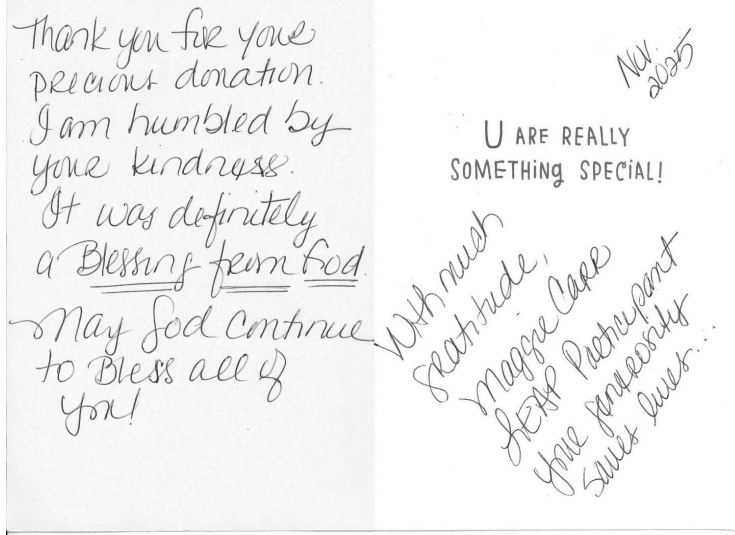 Thank you for your
precious donation.
I am humbled by
your kindness.
It was definitely
a Blessing from God.
May God continue
to Bless all of
you!
Nov.
2025
U ARE REALLY
SOMETHiNG SPECiAL!
With much
gratitude,
Maggie Carr
LEAP Participant
your generosity
saves lives...